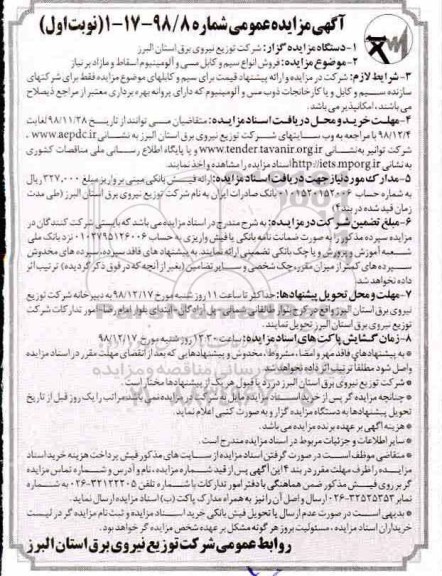 آگهی مزایده عمومی شماره ۹۸/۸-۱۷-۱ (نوبت اول)
۱-دستگاه مزایده گزار: شرکت توزیع نیروی برق استان البرز
۲-موضوع مزایده: فروش انواع سیم و کابل مسی و آلومینیوم اسقاط و مازاد بر نیاز
۳-شرایط لازم: شرکت در مزایده و ارائه پیشنهاد قیمت برای سیم و کابلهای موضوع مزایده فقط برای شرکتهای
سازنده سیم و کابل و یا کارخانجات ذوب مس و آلومینیوم که دارای پروانه بهره برداری معتبر از مراجع ذیصلاح
می باشند، امکانپذیر می باشد.
۴-مهلت خرید و محل دریافت اسناد مزایده: متقاضیان می توانند از تاریخ ۹۸/۱۱/۲۸ لغایت
۹۸/۱۲/۴ با مراجعه به وب سایتهای شرکت توزیع نیروی برق استان البرز به نشانی www.aepdc.ir ،
شرکت توانیر به نشانی www.tender.tavanir.org.ir و یا پایگاه اطلاع رسانی ملی مناقصات کشوری
به نشانی http://iets.mporg.ir اسناد مزایده را مشاهده و اخذ نمایند.
۵-مدارک مورد نیاز جهت دریافت اسناد مزایده: ارائه فیش بانکی مبنی بر واریز مبلغ ۳۲۷,۰۰۰ ریال
به شماره حساب ۰۱۰۱۵۲۰۱۵۲۰۰۶ بانک صادرات ایران به نام شرکت توزیع نیروی برق استان البرز (طی مدت
زمان قید شده در بند ۴)
۶-مبلغ تضمین شرکت در مزایده: به شرح مندرج در اسناد مزایده می باشد که بایستی شرکت کنندگان در
مزایده سپرده مذکور را به صورت ضمانت نامه بانکی یا فیش واریزی به حساب ۰۱۰۲۷۹۵۱۲۶۰۰۶ نزد بانک ملی
شعبه آموزش و پرورش و یا چک بانکی تضمینی ارائه نمایند. به پیشنهاد های فاقد سپرده، سپرده های مخدوش
سپرده های کمتر از میزان مقرر، چک شخصی و سایر تضامین (بغیر از آنچه که در فوق ذکر گردید) ترتیب اثر
داده نخواهد شد
۷-مهلت و محل تحویل پیشنهادها: حداکثر تا ساعت ۱۱ روز شنبه مورخ ۹۸/۱۲/۱۷ به دبیرخانه شرکت توزیع
نیروی برق استان البرز واقع در کرج بلوار طالقانی شمالی-پل آزادگان-ابتدای بلوار امام رضا-امور تدارکات شرکت
توزیع نیروی برق استان البرز تحویل نمایند.
۸-زمان گشایش پاکت های اسناد مزایده: ساعت ۱۳:۳۰ روز شنبه مورخ ۹۸/۱۲/۱۷
* به پیشنهادهای فاقد مهر و امضاء، مشروط، مخدوش و پیشنهادهایی که بعد از انقضای مهلت مقرر در اسناد مزایده
واصل شود مطلقا ترتیب اثر داده نخواهد شد.
* شرکت توزیع نیروی برق استان البرز در رد یا قبول هر یک از پیشنهادها مختار است.
* چنانچه مزایده گر پس از خرید اسناد مزایده مایل به شرکت در مزایده نمی باشد مراتب را یک روز قبل از تاریخ
تحویل پیشنهادها به دستگاه مزایده گزار و به صورت کتبی اعلام نماید.
* هزینه آگهی بر عهده برنده مزایده می باشد.
* سایر اطلاعات و جزئیات مربوط در اسناد مزایده مندرج است.
* متقاضی موظف است در صورت گرفتن اسناد مزایده از سایت های مذکور فیش پرداخت هزینه خرید اسناد
مزایده را ظرف مهلت مقرر در بند ۴ این آگهی پس از قید شماره مزایده، نام و آدرس و شماره تماس مزایده
گر بر روی فیش مذکور ضمن هماهنگی با دفتر امور تدارکات با شماره تلفن ۳۲۱۲۲۲۰۵-۰۲۶ به شماره
نمابر ۳۲۵۲۵۳۵۲-۰۲۶ ارسال و اصل آن را نیز به همراه مدارک پاکت (ب) اسناد مزایده ارسال نماید.
* بدیهی است در صورت عدم ارسال یا تحویل فیش بانکی خرید اسناد مزایده و ثبت نام مزایده گر در لیست
خریداران اسناد مزایده، مسئولیت بروز هر گونه مشکل بر عهده شخص مزایده گر خواهد بود.
روابط عمومی شرکت توزیع نیروی برق استان البرز